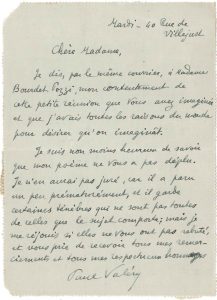 Mardi - 40 Rue de
Villejust
Chère Madame,
Je dis, par le même courrier, à Madame
Bourdet-Pozzi mon contentement de
cette petite réunion que vous avez imaginée
et que j'avais toutes les raisons du monde
pour désirer qu'on imaginât.
Je suis non moins heureux de savoir
que mon poème ne vous a pas déplu.
Je n'en aurai pas juré, car il a paru
un peu prématurément, et il garde
certaines ténèbres qui ne sont pas toutes
de celles que le sujet comporte; mais je
me réjouis si elles ne vous ont pas rebuté,
et vous prie de recevoir tous mes remer-
ciements et tous mes respectueux hommages
Paul Valéry